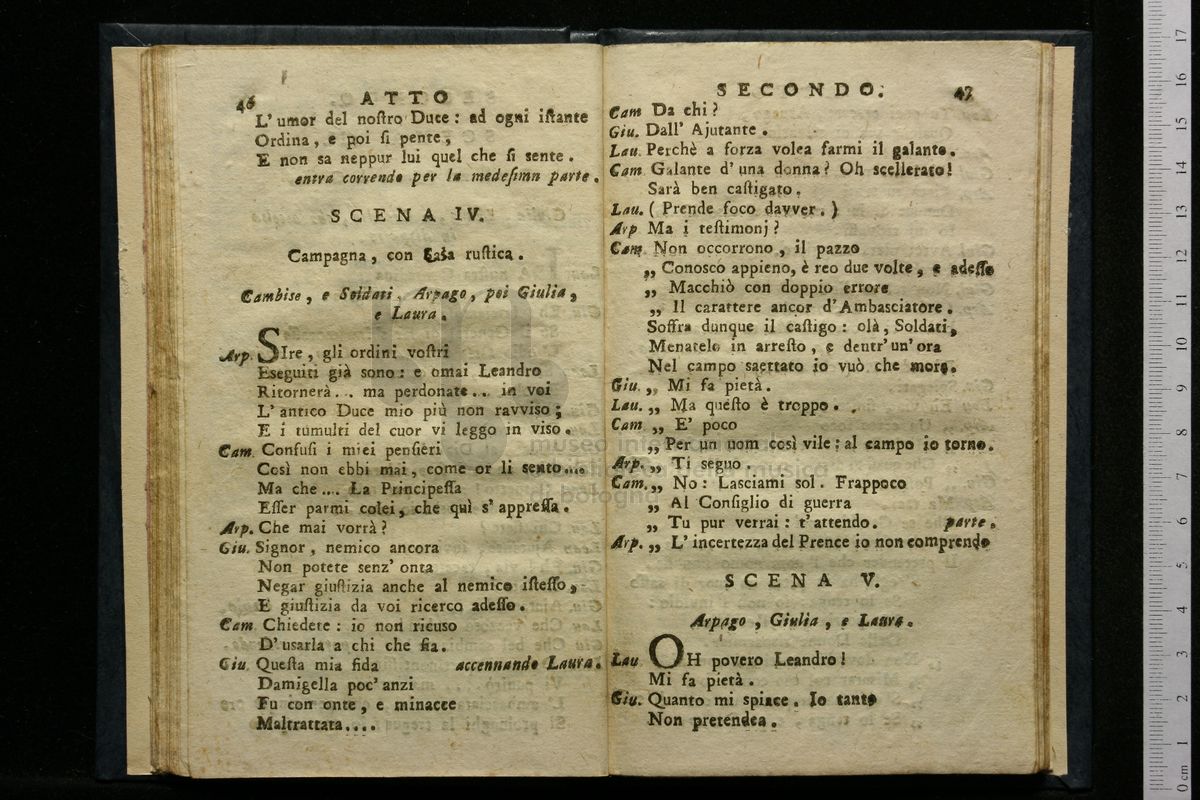 46 ATTO
L' umor del noſtro Duce: ad ogni iſtante
Ordina, e poi ſi pente,
E non sa neppur lui quel che ſi sente.
entra correndo per la medeſimn parte.
SCENA IV.
Campagna, con Caſa ruſtica.
Cambise, e Soldati, Arpago, poi Giulia,
e Laura.
Arp. SIre, gli ordini voſtri
Eseguiti già sono: e omai Leandro
Ritornerà... ma perdonate... in voi
L' antico Duce mio più non ravviso;
E i tumulti del cuor vi leggo in viso.
Cam. Confuſi i miei penſieri
Così non ebbi mai, come or li sento....
Ma che.... La Principeſſa
Eſſer parmi colei, che quì s' appreſſa.
Arp. Che mai vorrà?
Giu. Signor, nemico ancora
Non potete senz' onta
Negar giuſtizia anche al nemico iſteſſo,
E giuſtizia da voi ricerco adeſſo.
Cam. Chiedete: io non ricuso
D' usarla a chi che ſia.
Giu. Queſta mia fida accennando Laura.
Damigella poc' anzi
Fu con onte, e minacce
Maltrattata....
SECONDO. 47
Cam Da chi?
Giu. Dall' Ajutante.
Lau. Perchè a forza volea farmi il galante.
Cam Galante d' una donna? Oh scellerato!
Sarà ben caſtigato.
Lau. (Prende foco davver.)
Arp Ma i teſtimonj?
Cam. Non occorrono, il pazzo
„ Conosco appieno, è reo due volte, e adeſſo
„ Macchiò con doppio errore
„ Il carattere ancor d' Ambasciatore.
Soffra dunque il caſtigo: olà, Soldati,
Menatelo in arreſto, e dentr' un' ora
Nel campo saettato io vuò che mora.
Giu. „ Mi fa pietà.
Lau. „ Ma queſto è troppo.
Cam „ E' poco
„ Per un uom così vile: al campo io torno.
Arp. „ Ti seguo.
Cam. „ No: Lasciami sol. Frappoco
„ Al Conſiglio di guerra
„ Tu pur verrai: t' attendo. parte.
Arp. „ L' incertezza del Prence io non comprendo
SCENA V.
Arpago, Giulia, e Laura.
Lau OH povero Leandro!
Mi fa pietà.
Giu. Quanto mi spiace. Io tanto
Non pretendea.
museo internazionale
della musica
di bologna
0 cm 1 2 3 4 5 6 7 8 9 10 11 12 13 14 15 16 17